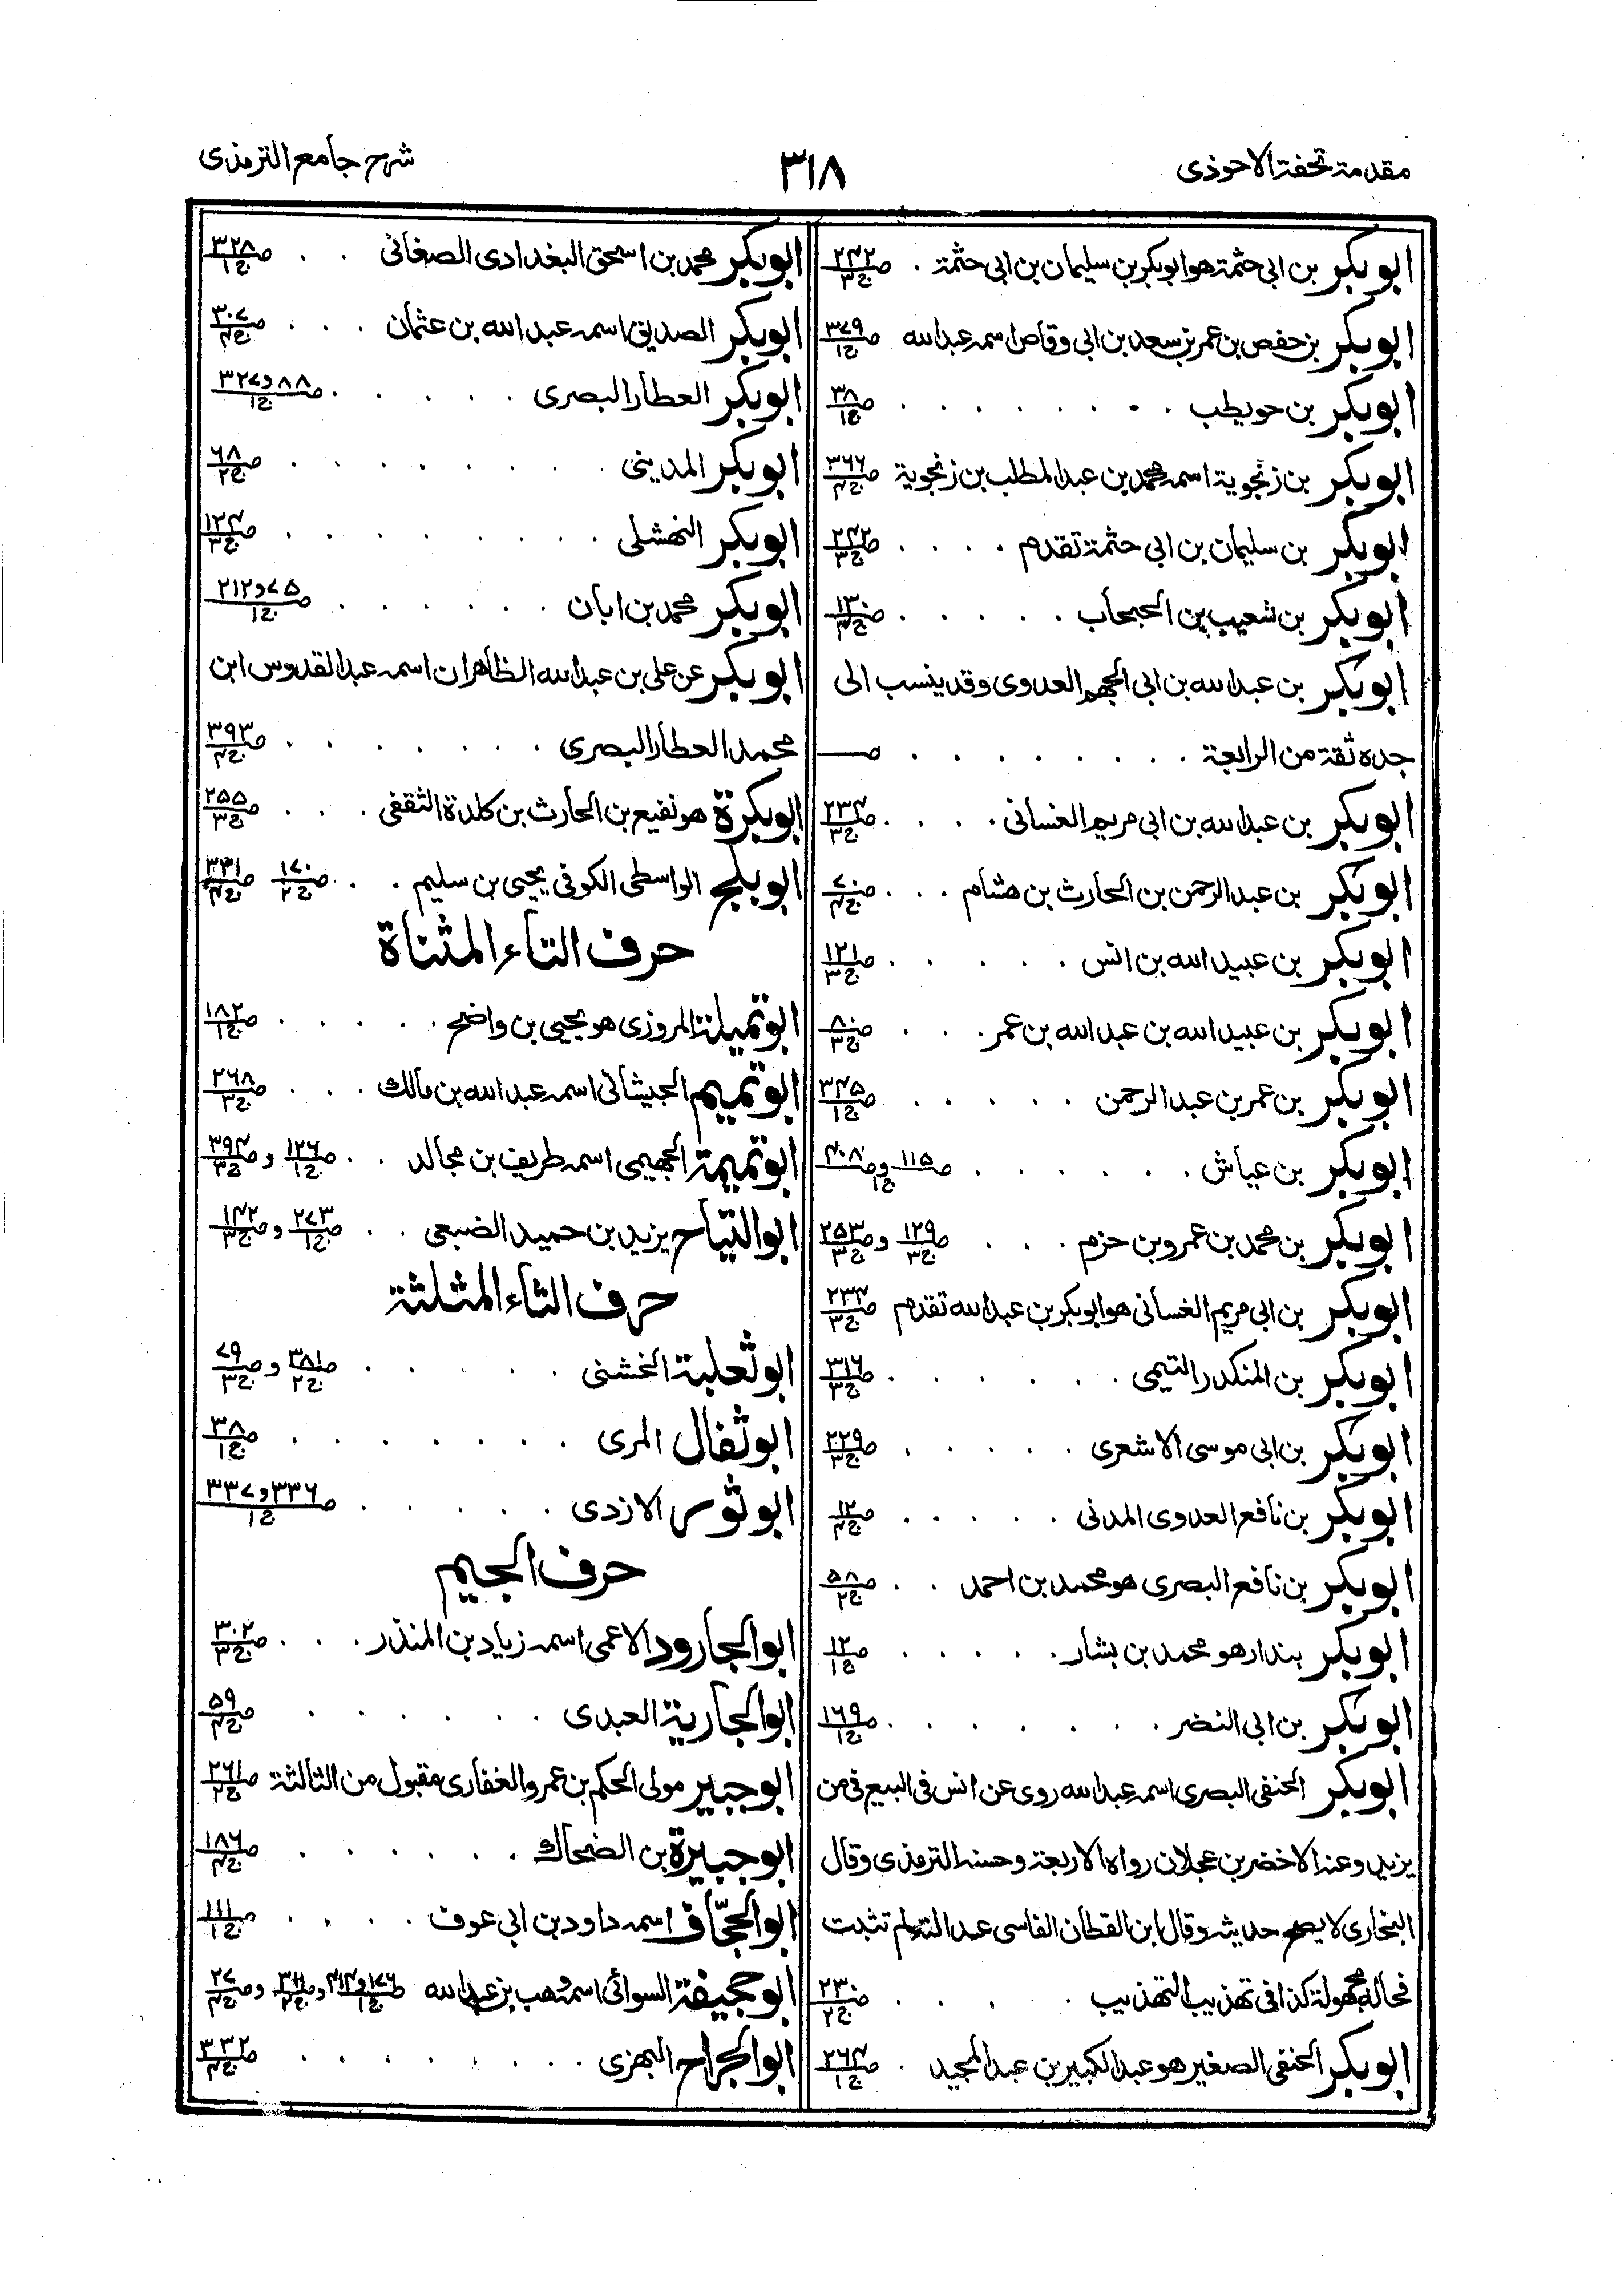 مقدمة تحفة الاحوذی ٣١٨ شرح جامع الترمذی
ابوبکر بن ابی حثمة هو ابوبکر بن سلیمان بن ابی حثمة . ص٢٤٢ ج٣
ابوبکر بن حفص بن عمر بن سعد بن ابی وقاص اسمه عبدالله ص٣٧٩ ج١
ابوبکر بن حویطب . . . . . . . . ص٣٨ ج١
ابوبکر بن زنجویة اسمه محمد بن عبدالمطلب بن زنجویة ص٣٦٦ ج٤
ابوبکر بن سلیمان بن ابی حثمة تقدم . . . . ص٢٤٢ ج٣
ابوبکر بن شعیب بن الحبحاب . . . . . ص١٣٠ ج٤
ابوبکر بن عبدالله بن ابی الجهم العدوی وقد ینسب الی
جده ثقة من الرابعة . . . . . . . . . ص
ابوبکر بن عبدالله بن ابی مریم الغسانی . . . . ص٢٣٤ ج٣
ابوبکر بن عبدالرحمن بن الحارث بن هشام . . . ص٧٠ ج٤
ابوبکر بن عبیدالله بن انس . . . . . ص١٢١ ج٣
ابوبکر بن عبیدالله بن عبدالله بن عمر . . . ص٨٠ ج٣
ابوبکر بن عمر بن عبدالرحمن . . . . . ص٣٤٥ ج١
ابوبکر بن عیاش . . . . . . ص١١٥ وص٤٠٨ ج١
ابوبکر بن محمد بن عمرو بن حزم . . . ص١٢٩ ج٣ وص٢٥٣ ج٣
ابوبکر بن ابی مریم الغسانی هو ابوبکر بن عبدالله تقدم ص٢٣٤ ج٣
ابوبکر بن المنکدر التیمی . . . . . . ص٣١٦ ج٣
ابوبکر بن ابی موسی الاشعری . . . . . ص٢٢٩ ج٣
ابوبکر بن نافع العدوی المدنی . . . . . ص١٢ ج٤
ابوبکر بن نافع البصری هو محمد بن احمد . . ص٥٨ ج٢
ابوبکر بندار هو محمد بن بشار . . . . . ص١٢ ج١
ابوبکر بن ابی النضر . . . . . . . ص١٦٩ ج١
ابوبکر الحنفی البصری اسمه عبدالله روی عن انس فی البیع فی من
یزید وعنه الاخضر بن عجلان رواه الاربعة وحسنه الترمذی وقال
البخاری لا یصح حدیثه وقال ابن القطان الفاسی عدالته لم تثبت
فحاله مجهولة کذا فی تهذیب التهذیب . . . . ص٢٣٠ ج٢
ابوبکر الحنفی الصغیر هو عبدالکبیر بن عبدالمجید . ص٢٦٤ ج١
ابوبکر محمد بن اسحق البغدادی الصغانی . . ص٣٢٨ ج١
ابوبکر الصدیق اسمه عبدالله بن عثمان . . . ص٣٠٧ ج٤
ابوبکر العطار البصری . . . . . ص٨٨ و٣٢٧ ج١
ابوبکر المدینی . . . . . . . . ص٦٨ ج٢
ابوبکر النهشلی . . . . . . . . ص١٢٤ ج٣
ابوبکر محمد بن ابان . . . . . . ص٧٥ و٢١٢ ج١
ابوبکر عن علی بن عبدالله الظاهر ان اسمه عبدالقدوس ابن
محمد العطار البصری . . . . . . . ص٣٩٣ ج٤
ابوبکرة هو نفیع بن الحارث بن کلدة الثقفی . . . ص٢٥٥ ج٣
ابوبلج الواسطی الکوفی یحیی بن سلیم . . ص١٧٠ ج٢ ص٣٣١ ج٤
حرف التاء المثناة
ابوتمیلة المروزی هو یحیی بن واضح . . . . . ص١٨٢ ج١
ابوتمیم الجیشانی اسمه عبدالله بن مالک . . . ص٢٦٨ ج٣
ابوتمیمة الهجیمی اسمه طریف بن مجالد . . ص١٢٦ ج١ وص٣٩٤ ج٣
ابوالتیّاح یزید بن حمید الضبعی . . ص٢٧٣ ج١ وص١٤٢ ج٣
حرف الثاء المثلثة
ابوثعلبة الخشنی . . . . . ص٣٨١ ج٢ وص٧٩ ج٣
ابوثفال المری . . . . . . . . ص٣٨ ج١
ابوثور الازدی . . . . . ص٣٣٦ و٣٣٧ ج١
حرف الجیم
ابوالجارود الاعمی اسمه زیاد بن المنذر . . . . ص٣٠٢ ج٣
ابوالجاریة العبدی . . . . . . . ص٥٩ ج٤
ابوجبیر مولی الحکم بن عمرو الغفاری مقبول من الثالثة ص٢٦١ ج٢
ابوجبیرة بن الضحاک . . . . . . . ص١٨٦ ج٤
ابوالجحّاف اسمه داود بن ابی عوف . . . . ص١١١ ج١
ابوجحیفة السوائی اسمه وهب بن عبدالله ص١٧٦ و٤١٤ ج١ وص٣١١ ج٢ وص٢٧ ج٤
ابوالجراح البهزی . . . . . . . . ص٣٣٢ ج٤